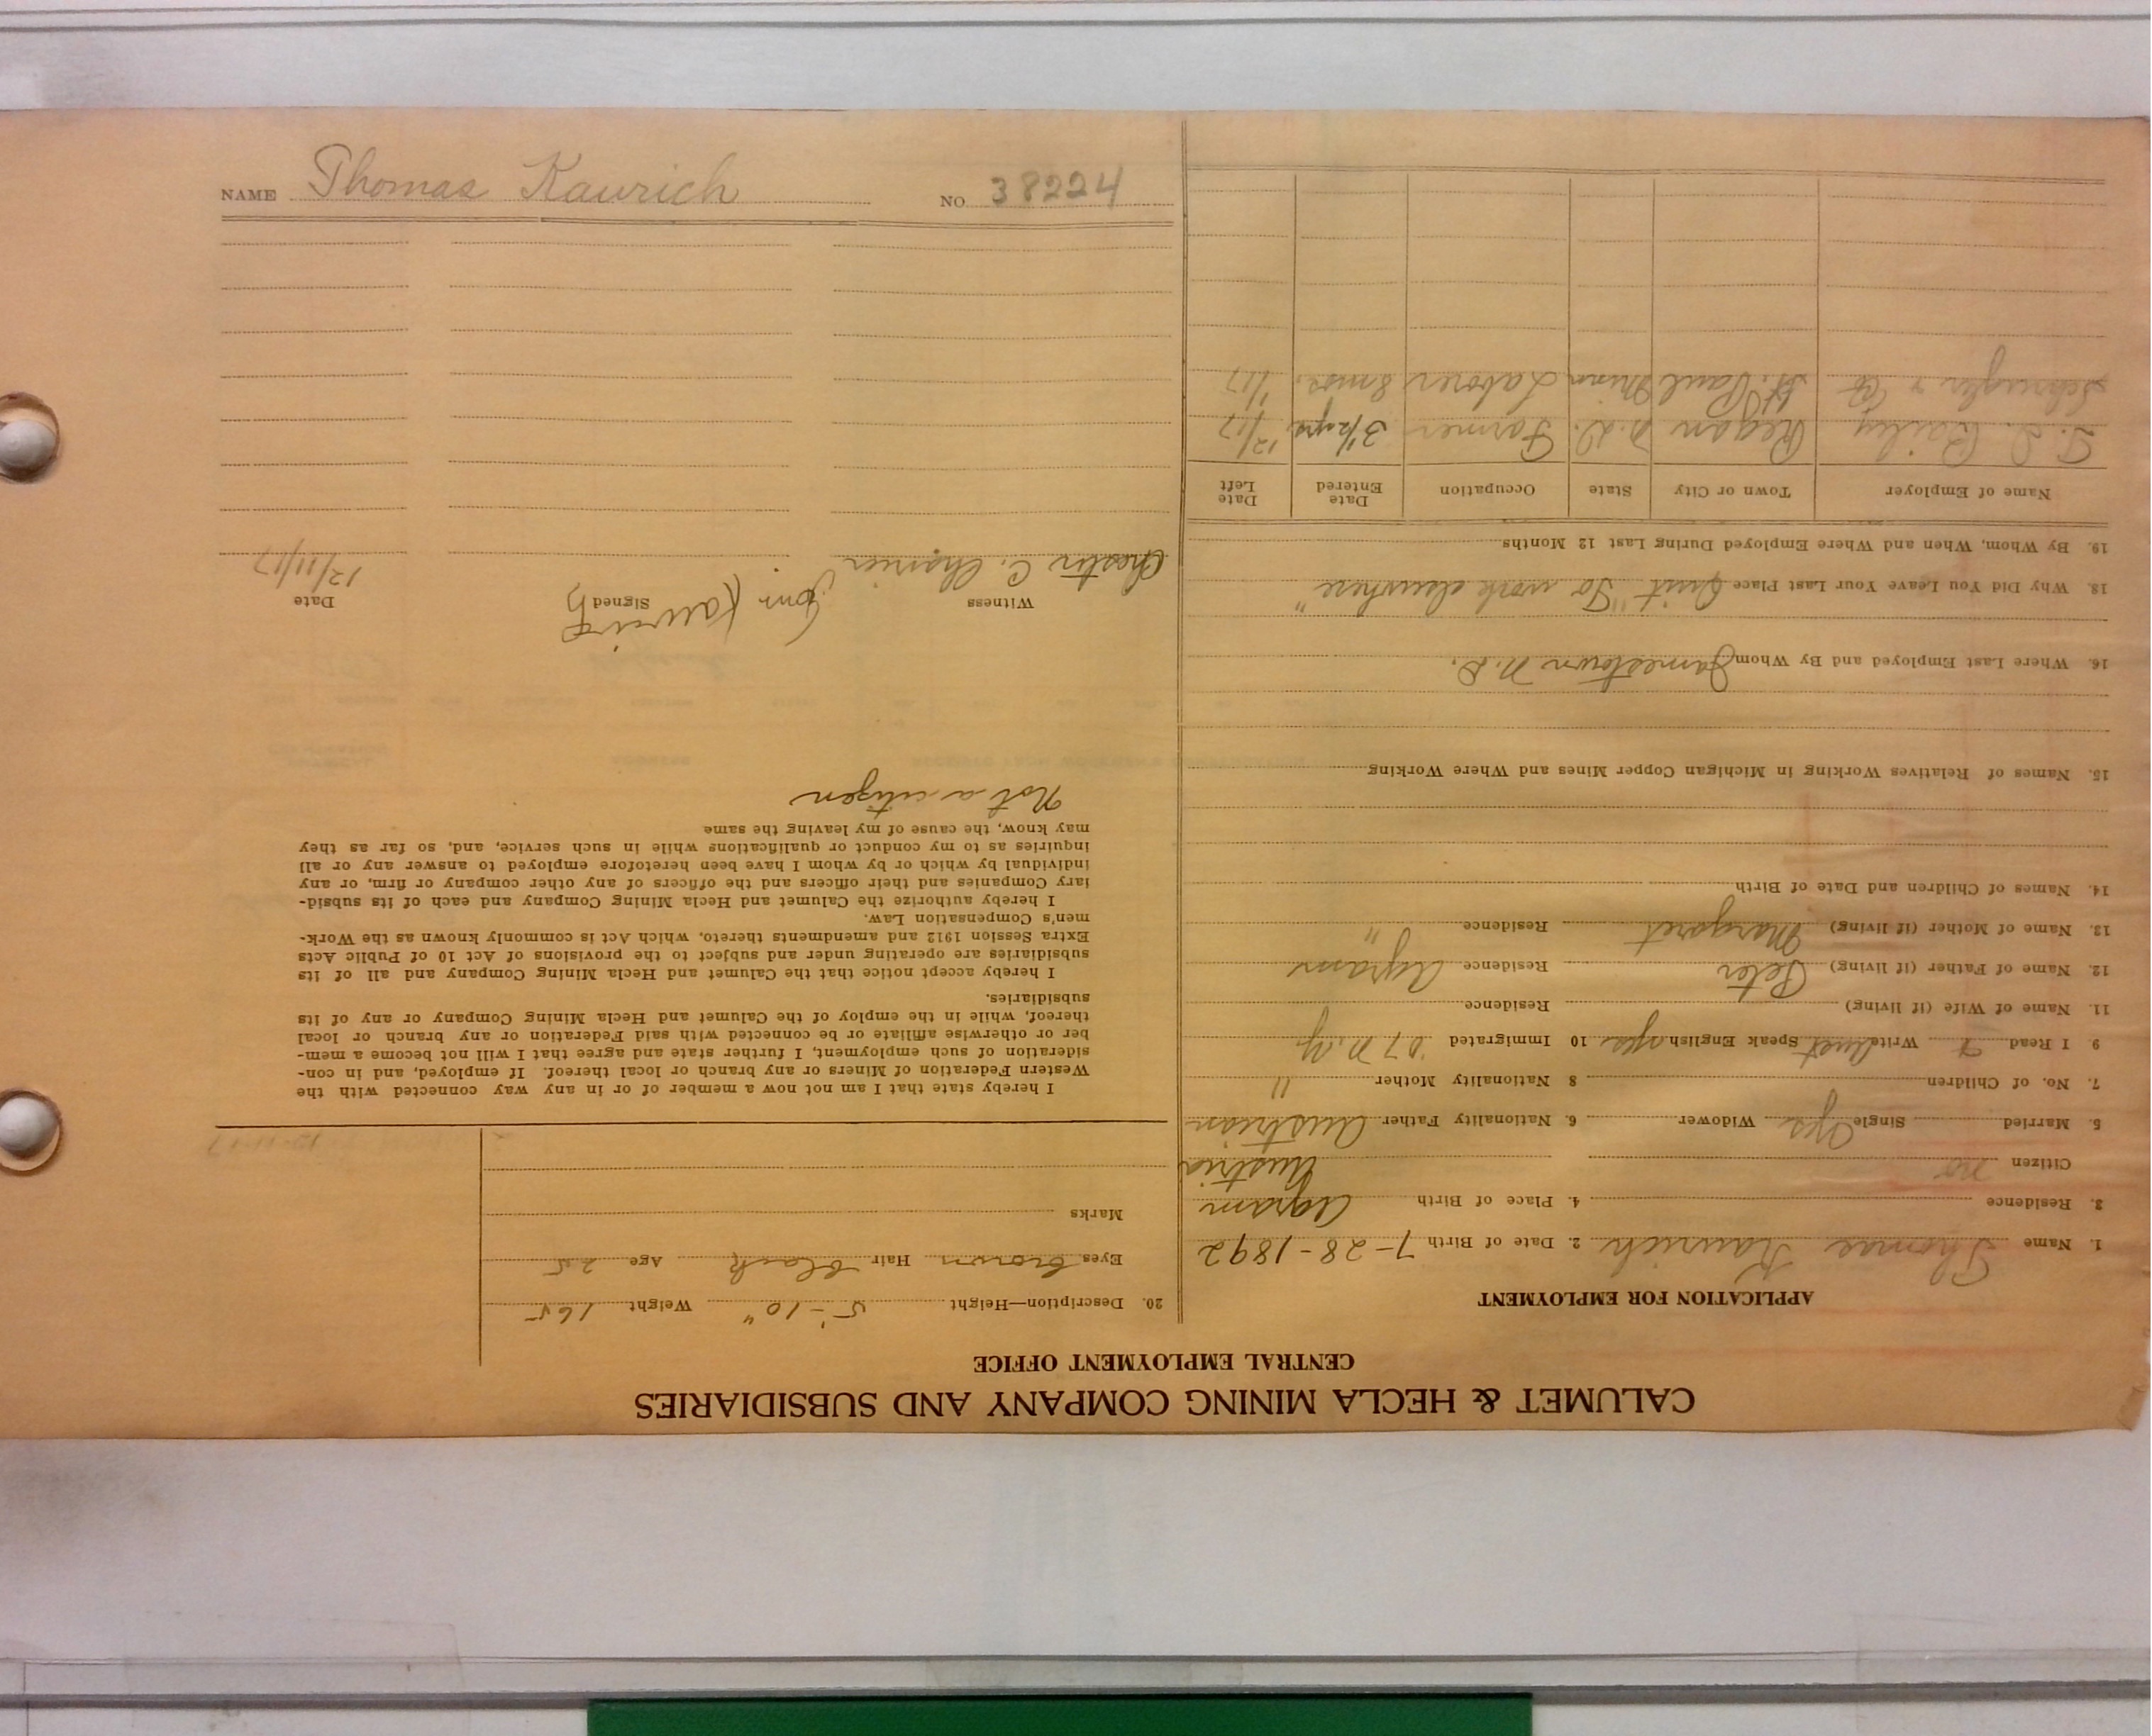 NAME Thomas Kaurich NO 38224
CALUMET & HECLA MINING COMPANY AND SUBSIDIARIES
CENTRAL EMPLOYMENT OFFICE
APPLICATION FOR EMPLOYMENT
1. Name Thomas Kaurich 2. Date of Birth 7-28-1892
3. Residence 4. Place of Birth Agram
Citizen no Austria
5. Married Single yes Widower 6. Nationality Father Austrian
7. No. of Children 8 Nationality Mother "
9. I Read Write Speak English yes 10 Immigrated '07 N.Y.
11. Name of Wife (if living) Residence
12. Name of Father (if living) Peter Residence Agram
13. Name of Mother (if living) Margaret Residence "
14. Names of Children and Date of Birth
15. Names of Relatives Working in Michigan Copper Mines and Where Working
16. Where Last Employed and By Whom Jamestown N.D.
18. Why Did You Leave Your Last Place Quit "To work elsewhere"
19. By Whom, When and Where Employed During Last 12 Months
Name of Employer Town or City State Occupation Date Entered Date Left
Regan N.D. Farmer 3 1/2 yrs 12/17
& Co St. Paul Minn Laborer 8 mos. 1/17
20. Description—Height 5'-10" Weight 165
Eyes brown Hair black Age 25
Marks
I hereby state that I am not now a member of or in any way connected with the
Western Federation of Miners or any branch or local thereof. If employed, and in con-
sideration of such employment, I further state and agree that I will not become a mem-
ber or otherwise affiliate or be connected with said Federation or any branch or local
thereof, while in the employ of the Calumet and Hecla Mining Company or any of its
subsidiaries.
I hereby accept notice that the Calumet and Hecla Mining Company and all of its
subsidiaries are operating under and subject to the provisions of Act 10 of Public Acts
Extra Session 1912 and amendments thereto, which Act is commonly known as the Work-
men's Compensation Law.
I hereby authorize the Calumet and Hecla Mining Company and each of its subsid-
iary Companies and their officers and the officers of any other company or firm, or any
individual by which or by whom I have been heretofore employed to answer any or all
inquiries as to my conduct or qualifications while in such service, and, so far as they
may know, the cause of my leaving the same
Not a citizen
Witness Signed Date
Tom
Chester C. 12/11/17